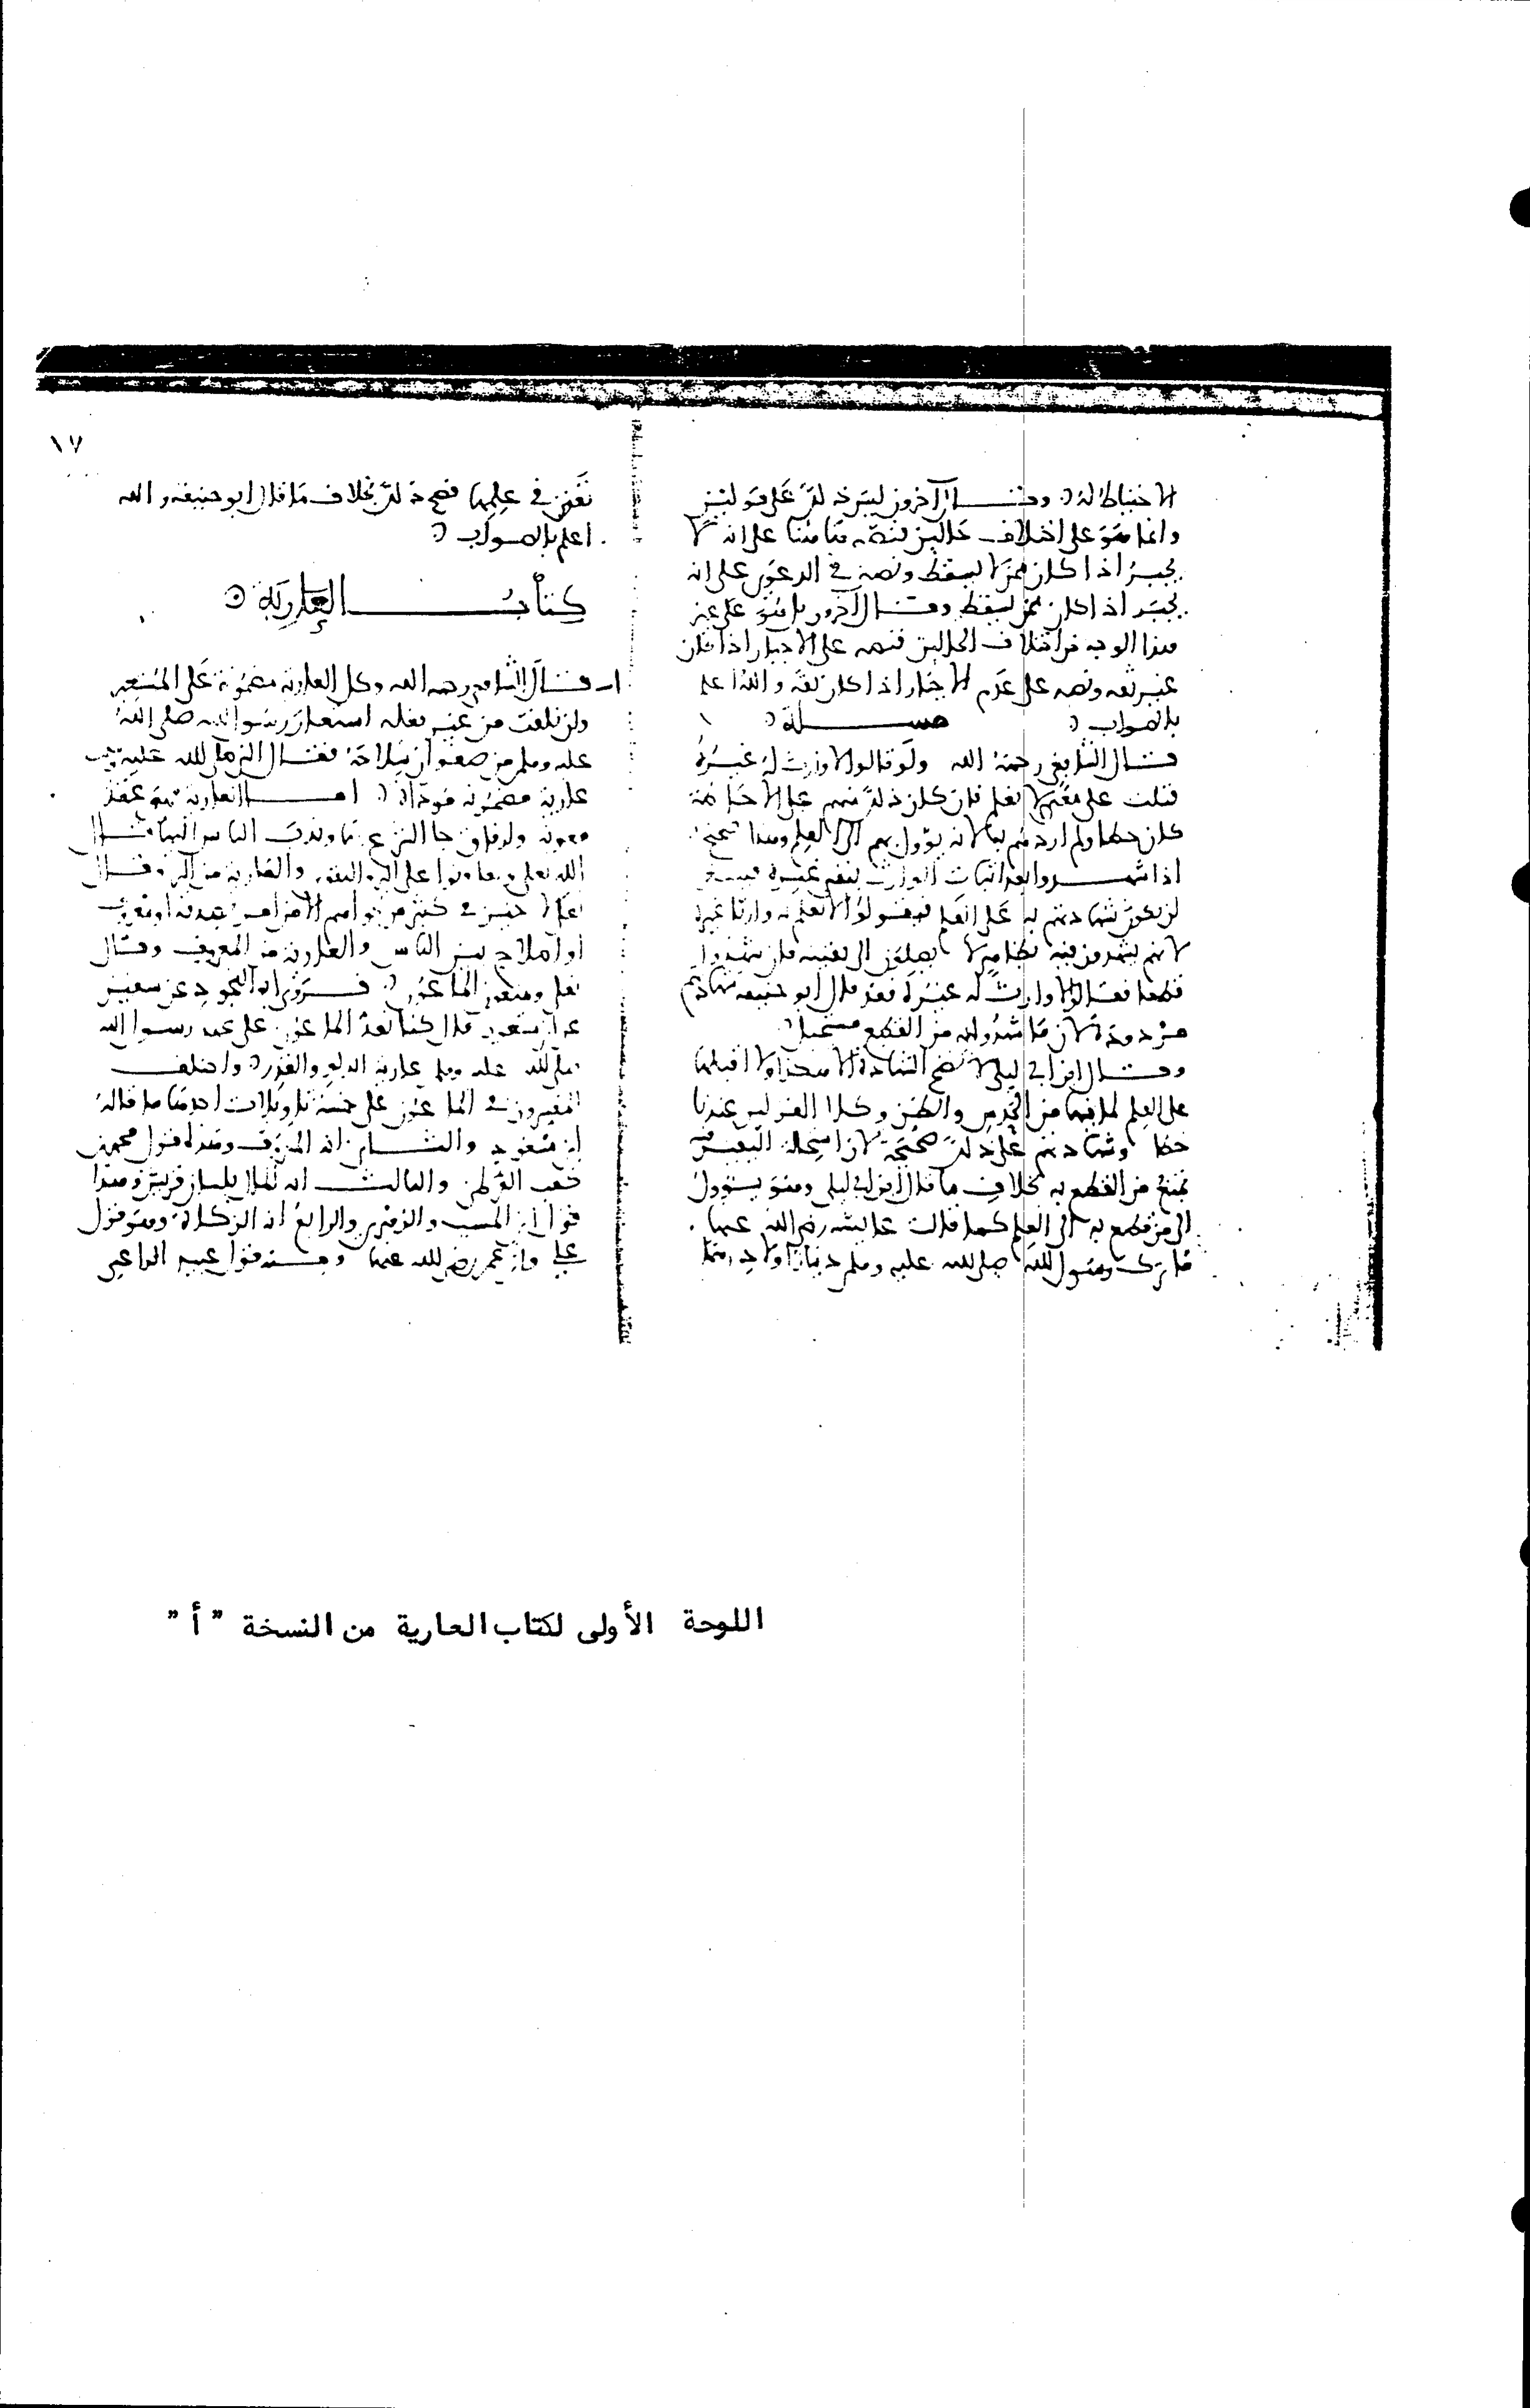 ١٧
الاحتياط له وقال آخرون ليس ذلك على قولين
وانما هو على اختلاف حالين فنصه هاهنا على انه لا
يجبر اذا كان ممن لا يسقط ونصه في الدعوى على انه
يجبر اذا كان ممن يسقط وقال آخرون بل هو على غير
هذا الوجه من اختلاف الحالين فنصه على الاجبار اذا كان
غير ثقه ونصه على عدم الاجبار اذا كان ثقة والله اعلم
بالصواب مسـلة
قال الشافعي رحمة الله ولو قالوا لا وارث له غيره
قبلت على معنى لا نعلم فان كان ذلك منهم على الاحاطة
كان خطا ولم اردهم به لانه يؤول بهم الى العلم وهذا صحيح
اذا شهدوا بعد اثبات الوارث بنفي غيره
لن يكون شهادتهم به على العلم فيقولوا لا نعلم له وارثا غيره
لانهم يشهدون فيه بظاهر لا يصلون الى يقينه فان شهدوا
قطعا فقالوا لا وارث له غيره فقد قال ابو حنيفه شهادتهم
مردودة لان ما شهدوا به من القطع مستحيل
وقال ابن ابي ليلى لا تصح الشهادة الا هكذا ولا اقبلها
على العلم لما فيها من الحدس والظن وكلا القولين عندنا
خطا وشهادتهم على ذلك صحيحة لان استحالة اليقين
تمنع من القطع به بخلاف ما قال ابن ابي ليلى وهو يؤول
الى من قطع به الى العلم كما قالت عايشه رضي الله عنها
ما ترك رسول الله صلى الله عليه وسلم دينارا ولا درهما
في علمها فصح ذلك بخلاف ما قال ابو حنيفه والله
اعلم بالصواب
كتاب العارية
قال الشافعي رحمه الله وكل العارية مضمونة على المستعير
وان تلفت من غير فعله استعار رسول الله صلى الله
عليه وسلم من صفوان سلاحه فقال النبي صلى الله عليه وسلم
عارية مضمونه مؤداة اما العارية فهي عقد
معونه وارفاق جا الشرع بها وندب الناس اليها قال
الله تعالى وتعاونوا على البر والتقوى والعارية من البر وقال
تعالى لا خير في كثير من نجواهم الا من امر بصدقة او معروف
او اصلاح بين الناس والعارية من المعروف وقال
تعالى ويمنعون الماعون فروى ابي النجود عن سفين
عن ابن مسعود قال كنا نعد الماعون على عهد رسول الله
صلى الله عليه وسلم عارية الدلو والقدر واختلف
المفسرون في الماعون على خمسة تاويلات احدها ما قاله
ابن مسعود والثاني انه المعروف وهذا قول محمد بن
كعب القرظي والثالث انه المال بلسان قريش وهذا
قول ابن المسيب والزهري والرابع انه الزكاة وهو قول
علي وابن عمر رضي الله عنهما ومنه قول عبيد الراعي
اللوحة الأولى لكتاب العارية من النسخة "أ"